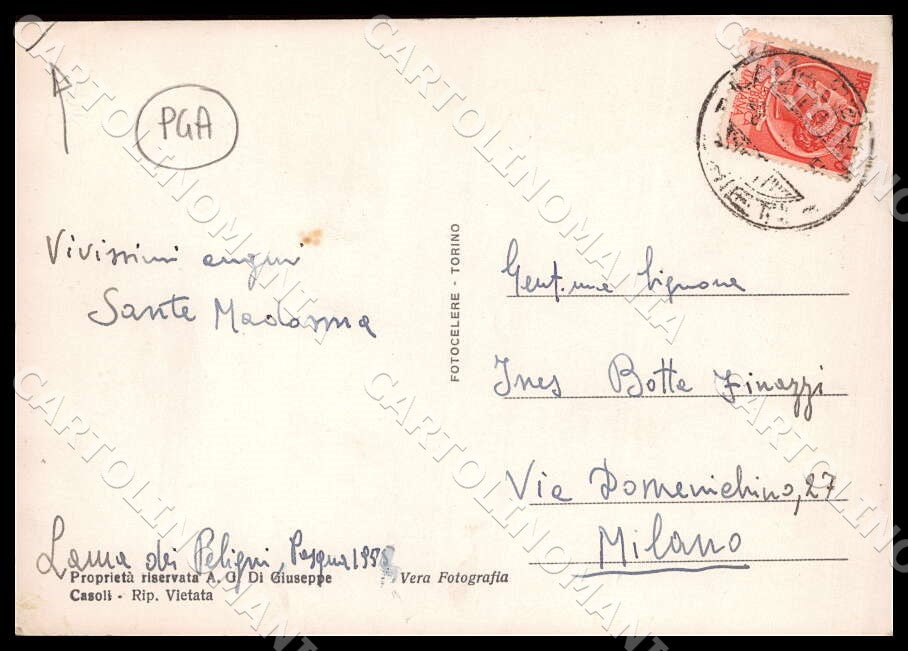 PGA
Vivissimi auguri
Sante Madonna
Lama dei Peligni, Pasqua 1958
Proprietà riservata A. G. Di Giuseppe
Casoli - Rip. Vietata
Vera Fotografia
FOTOCELERE - TORINO
Gent.ma Signora
Ines Botta Finazzi
Via Domenichino, 27
Milano
CHIETI
CARTOLINOMANIA